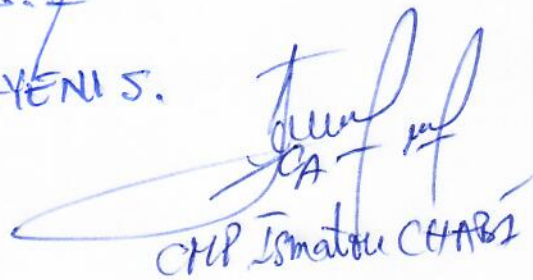 YENI S.
CA
CMP Ismatou CHABI